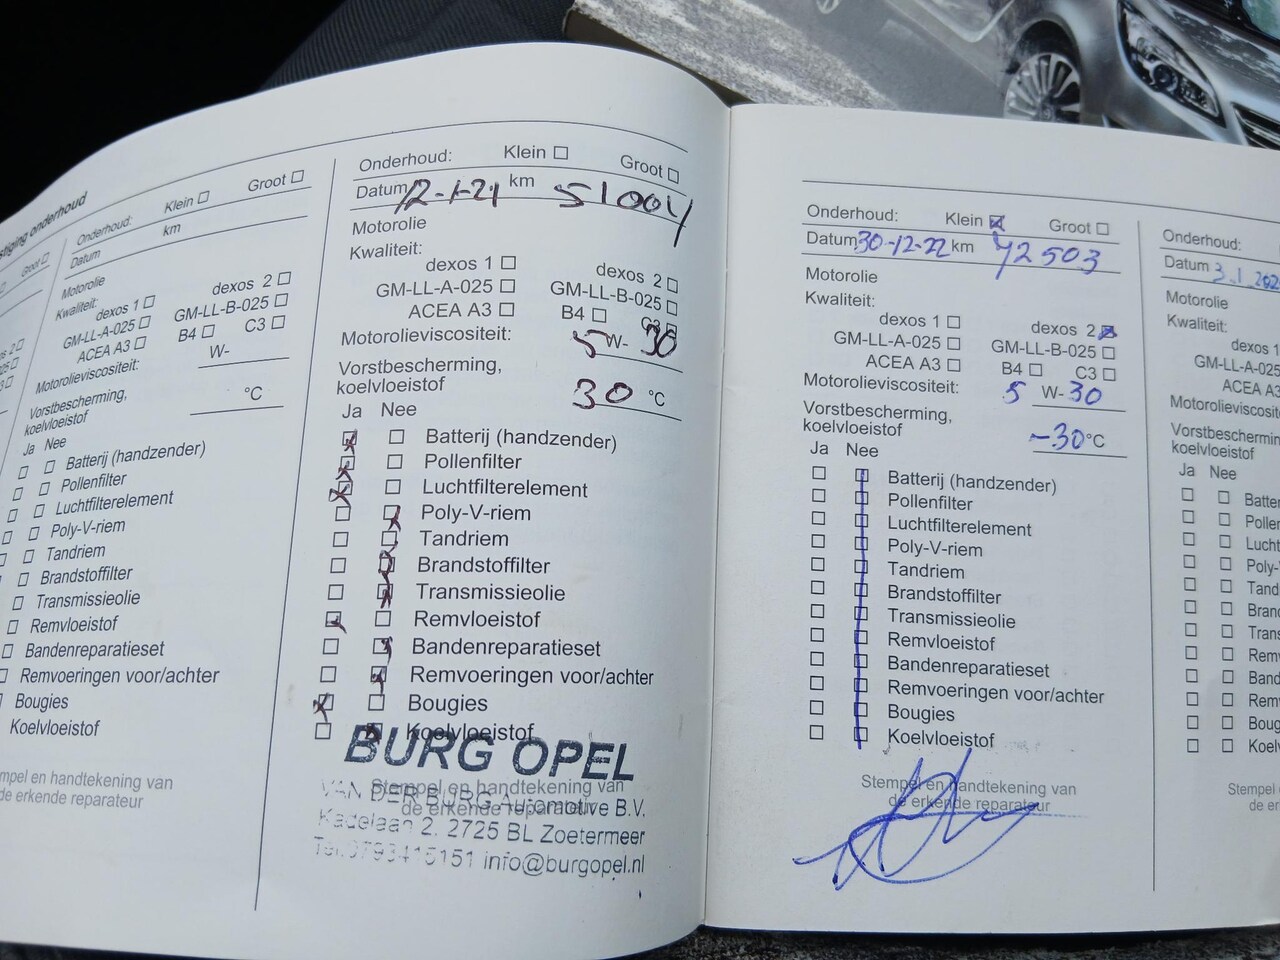 stiging onderhoud
Groot
2
Ja Nee
mpel en handtekening van
de erkende reparateur
Onderhoud: Klein Groot
Datum km
Motorolie
Kwaliteit:
dexos 1 dexos 2
GM-LL-A-025 GM-LL-B-025
ACEA A3 B4 C3
Motorolieviscositeit: W-
Vorstbescherming,
koelvloeistof °C
Batterij (handzender)
Pollenfilter
Luchtfilterelement
Poly-V-riem
Tandriem
Brandstoffilter
Transmissieolie
Remvloeistof
Bandenreparatieset
Remvoeringen voor/achter
Bougies
Koelvloeistof
Onderhoud: Klein Groot
Datum 12-1-21 km 51004
Motorolie
Kwaliteit:
dexos 1 dexos 2
GM-LL-A-025 GM-LL-B-025
ACEA A3 B4 C3
Motorolieviscositeit: 5 W- 30
Vorstbescherming,
koelvloeistof 30 °C
Ja Nee
Batterij (handzender)
Pollenfilter
Luchtfilterelement
Poly-V-riem
Tandriem
Brandstoffilter
Transmissieolie
Remvloeistof
Bandenreparatieset
Remvoeringen voor/achter
Bougies
Koelvloeistof
BURG OPEL
Stempel en handtekening van
de erkende reparateur
VAN DER BURG Automotive B.V.
Kadelaan 2, 2725 BL Zoetermeer
Tel. 0793415151 info@burgopel.nl
Onderhoud: Klein Groot
Datum 30-12-22 km 72503
Motorolie
Kwaliteit:
dexos 1 dexos 2
GM-LL-A-025 GM-LL-B-025
ACEA A3 B4 C3
Motorolieviscositeit: 5 W- 30
Vorstbescherming,
koelvloeistof -30 °C
Ja Nee
Batterij (handzender)
Pollenfilter
Luchtfilterelement
Poly-V-riem
Tandriem
Brandstoffilter
Transmissieolie
Remvloeistof
Bandenreparatieset
Remvoeringen voor/achter
Bougies
Koelvloeistof
Stempel en handtekening van
de erkende reparateur
Onderhoud:
Datum 3.1.202
Motorolie
Kwaliteit:
dexos 1
GM-LL-A-025
ACEA A3
Motorolieviscosite
Vorstbescherming,
koelvloeistof
Ja Nee
Batter
Pollen
Lucht
Poly-
Tand
Bran
Trans
Rem
Band
Rem
Boug
Koelv
Stempel en
de er